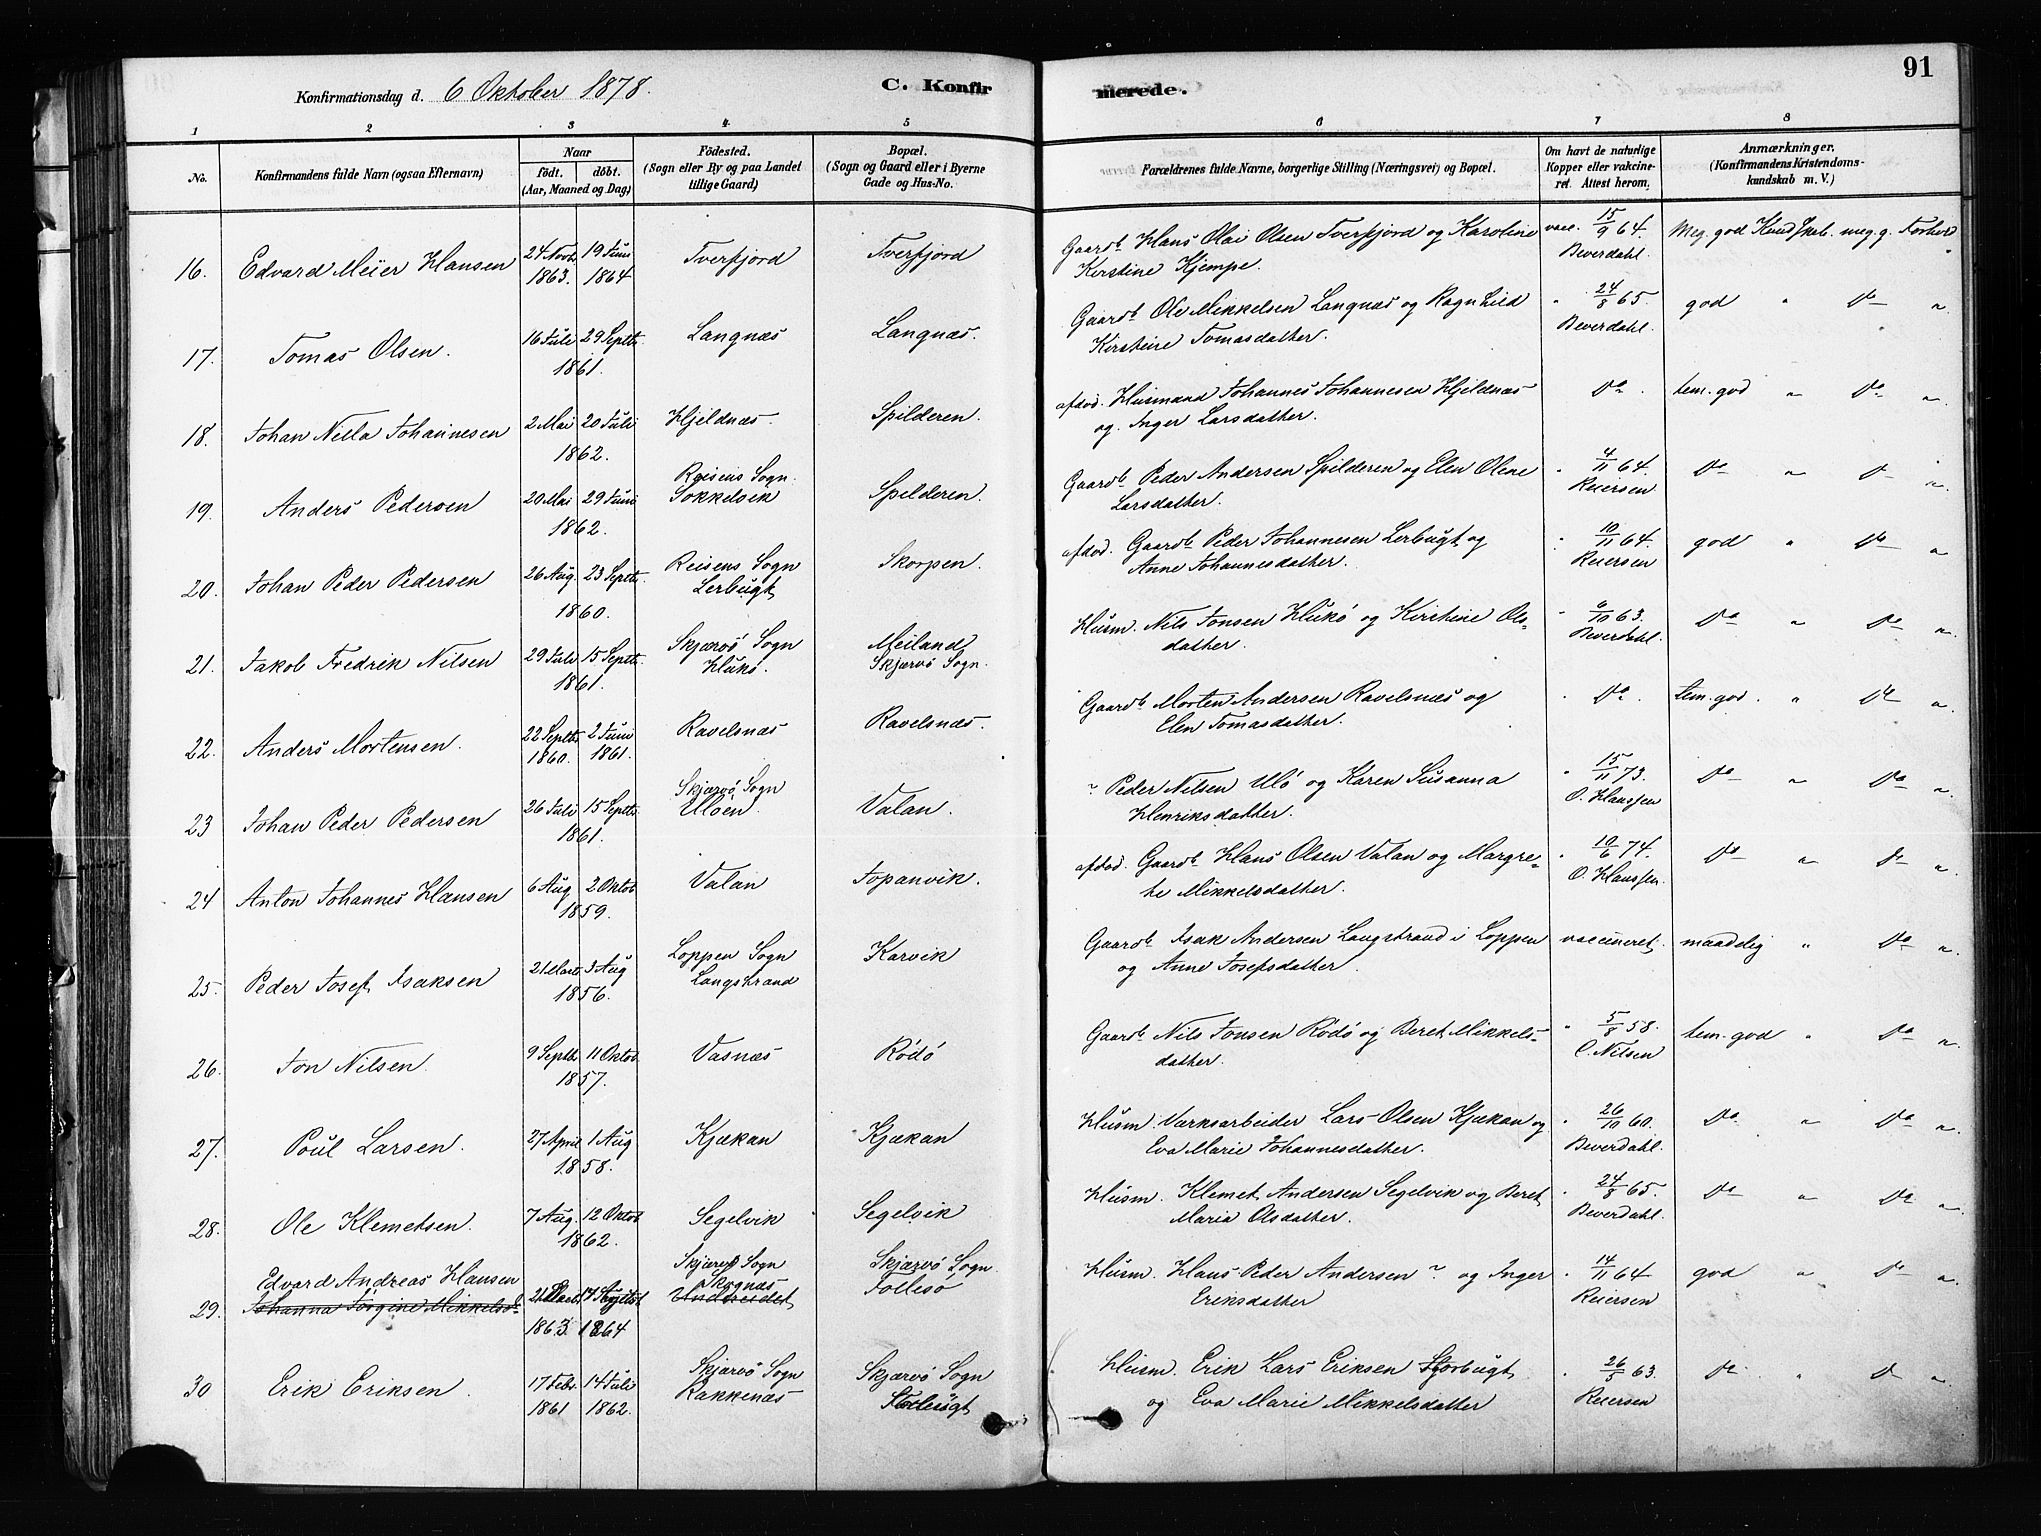 91
Konfirmationsdag d. 6 Oktober 1878. C. Konfirmerede.
1 2 3 4 5 6 7 8
No. Konfirmandens fulde Navn (ogsaa Efternavn) Naar födt. döbt. (Aar, Maaned og Dag) Födested. (Sogn eller By og paa Landet tillige Gaard) Bopæl. (Sogn og Gaard eller i Byerne Gade og Hus-No. Forældrenes fulde Navne, borgerlige Stilling (Næringsvei) og Bopæl. Om havt de naturlige Kopper eller vakcineret. Attest herom. Anmærkninger. (Konfirmandens Kristendomskundskab m. V.)
16. Edvard Meier Hansen 24 Novb. 1863. 19 Juni 1864 Tverfjord Tverfjord Gaardb. Hans Olai Olsen Tverfjord og Karoline Kirstine Kjempe. vacc. 15/9 64. Beverdahl. Meg. god Kundskab. meg. g. Forhold
17. Tomas Olsen. 16 Juli 29 Septb. 1861. Langnæs Langnæs. Gaardb. Ole Mikkelsen Langnæs og Ragnhild Kirstine Tomasdatter. " 24/8 65. Beverdahl. god " Do "
18. Johan Nilla Johannesen 2 Mai 20 Juli 1862. Hjeldnæs. Spilderen. afdød. Husmand Johannes Johannesen Hjeldnæs og Inger Larsdatter. Do. tem. god " Do "
19. Anders Pedersen 20 Mai 29 Juni 1862. Reisens Sogn Sokkelvik Spilderen. Gaardb. Peder Andersen Spilderen og Elen Olene Larsdatter. " 4/11 64. Reiersen Do " Do "
20. Johan Peder Pedersen 26 Aug. 23 Septb. 1860. Reisens Sogn Lerbugt Skorpen. afdød. Gaardb. Peder Johannesen Lerbugt og Anne Johannesdatter. " 10/11 64. Reiersen god " Do "
21. Jakob Fredrik Nilsen 29 Juli 15 Septb. 1861. Skjærvö Sogn Hukö. Meiland Skjærvö Sogn. Husm. Nils Jonsen Hukö og Kirstine Olsdatter. " 6/10 63. Beverdahl. Do " Do "
22. Anders Mortensen. 22 Septb. 1860. 2 Juni 1861. Ravelsnæs Ravelsnæs. Gaardb. Morten Andersen Ravelsnæs og Elen Tomasdatter. " Do. tem. god. " Do "
23 Johan Peder Pedersen 26 Juli 15 Septb. 1861. Skjærvö Sogn Ulöen. Valan. " Peder Nilsen Ulö og Karen Susanna Henriksdatter. " 15/11 73. O. Hanssen Do " Do "
24 Anton Johannes Hansen 6 Aug 2 Oktob 1859. Valan Topanvik. afdød. Gaardb. Hans Olsen Valan og Margrethe Mikkelsdatter. " 10/6 74. O. Hanssen. Do " Do "
25. Peder Josef Isaksen 21 Marts 3 Aug 1856. Loppen Sogn Langstrand Karvik Gaardb. Isak Andersen Langstrand i Loppen og Anne Josefsdatter. vaccineret. maadelig " Do "
26. Jon Nilsen. 9 Septb. 11 Oktob. 1857. Vasnæs Rödö Gaardb. Nils Jonsen Rödö og Beret Mikkelsdatter. " 5/8 58. C. Nilsen tem. god " Do "
27. Poul Larsen. 27 April 1 Aug 1858. Kjækan Kjækan Husm. Værksarbeider Lars Olsen Kjækan og Eva Marie Johannesdatter. " 26/10 60. Beverdahl. Do " Do "
28. Ole Klemetsen. 7 Aug. 12 Oktob 1862. Segelvik Segelvik Husm. Klemet Andersen Segelvik og Beret Maria Olsdatter. " 24/8 65. Beverdahl. Do " Do "
29. Edvard Andreas Hansen Johanna Jørgine Mikkelsd. 1863. 1864 Skjærvö Sogn Skognæs Undereidet Skjærvö Sogn. Follesö Husm. Hans Peder Andersen " og Inger Eriksdatter " 14/11 64 Reiersen god " Do "
30 Erik Eriksen. 17 Febr. 1861 14 Juli 1862. Skjærvö Sogn Rakkenæs Skjærvö Sogn Husm. Erik Lars Eriksen og Eva Marie Mikkelsdatter " 26/5 63. Reiersen Do. " Do "